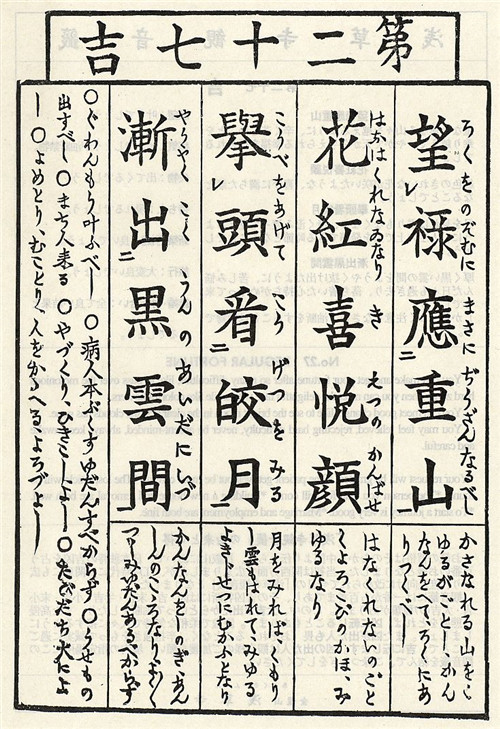 第二十七吉
ろくをのぞむに まさに ぢうざんなるべし
望レ禄應二重山一
かさなれる山をこ
ゆるがごとし、かん
なんをへてろくにあ
りつく、
はなはくれなゐなり き えつの かんばせ
花紅喜悦顔
はなくれないのごと
くよろこびのかほ、み
ゆるなり、
こうべをあげて こう げつを みる
擧レ頭看二皎月一
月をみればくもり
し雲もはれてみゆる
よき せつにむかふとなり
やうやく こく うんの あいだにいづ
漸出二黒雲間一
かんなんをしのぎ、あん
しんのところなり、よく
つゝしみゆだんあるべからず
〇ぐわんもう叶ふべし 〇病人本ぷくすゆだんすべからず 〇うせもの
出すべし 〇まち人来る 〇やづくり、ひきこしよし 〇たびだち大によ
し 〇よめとり、むことり、人をかゝへるよろづよし